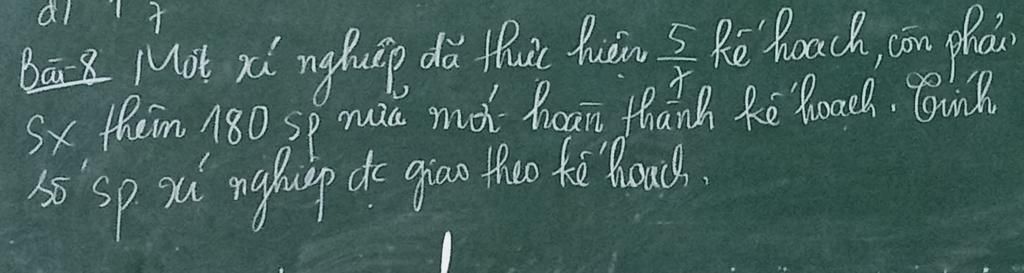 d) 7
Bài 8 Một xí nghiệp đã thực hiện 5/7 kế hoạch, còn phải
SX thêm 180 sp nữa mới hoàn thành kế hoạch. Tính
số sp xí nghiệp đc giao theo kế hoạch.